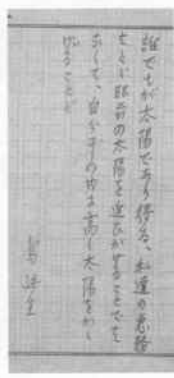 誰でもが太陽であり得る、私達の急務
はただ眼前の太陽を追ひかけることでは
なくて、自分等の内に高く太陽をかゝ
げることだ
島崎生